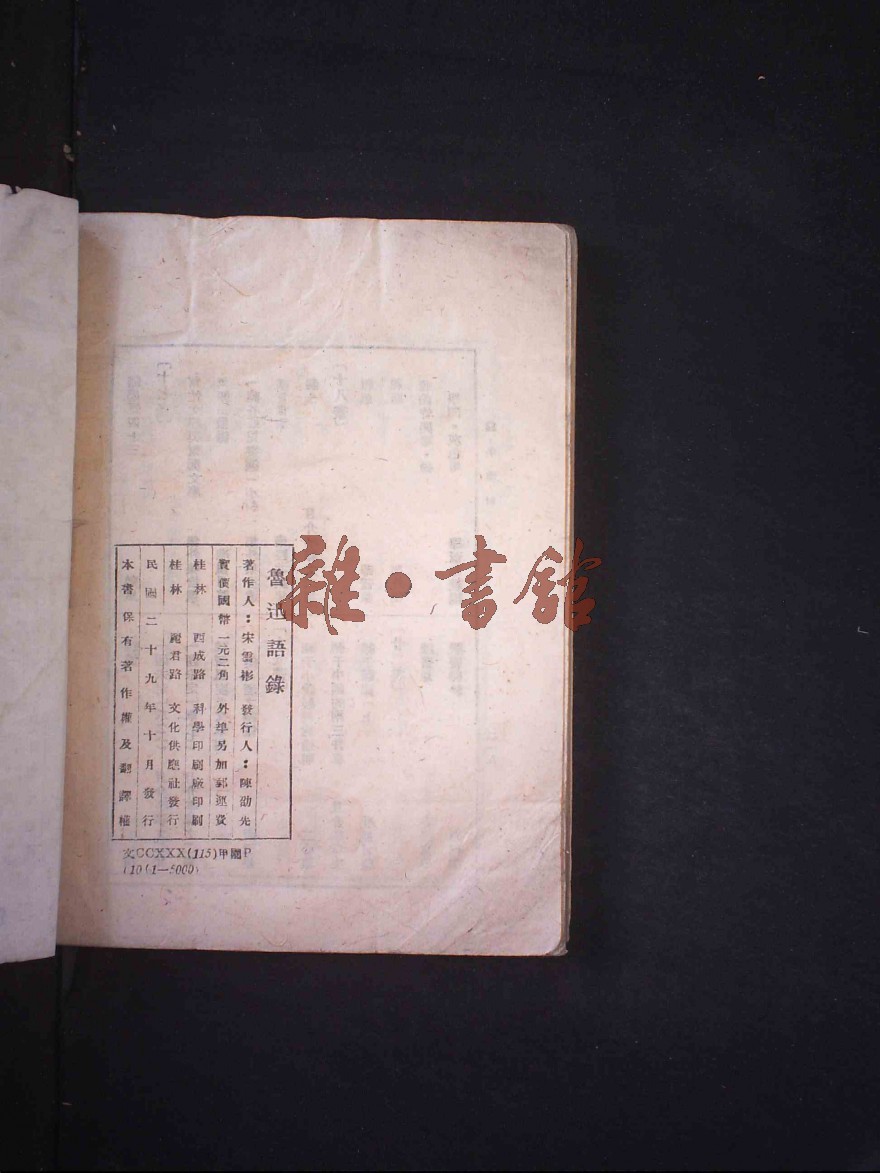 魯迅語錄
著作人：宋雲彬 發行人：陳劭先
實價國幣一元二角 外埠另加郵運費
桂林 西成路 科學印刷廠印刷
桂林 麗君路 文化供應社發行
民國二十九年十月發行
本書保有著作權及翻譯權
文CCXXX(115)甲國P
(10(1—5000)
雜·書館